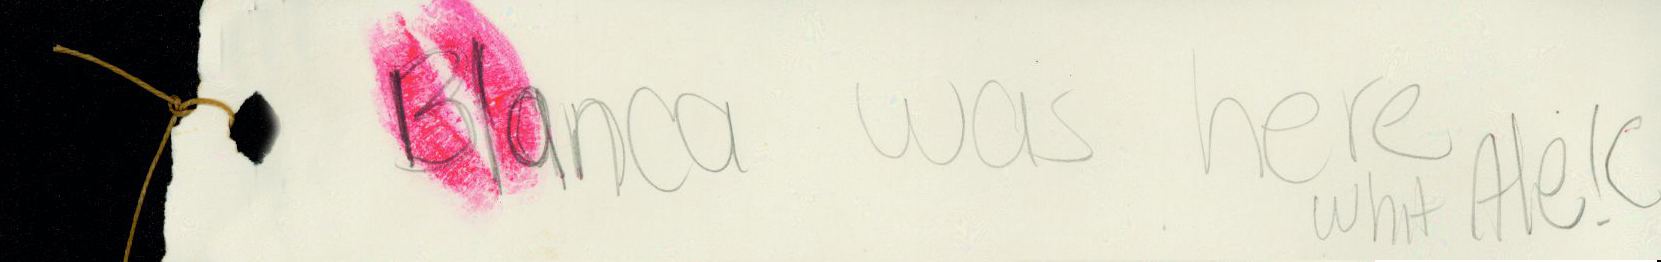 Blanca was here
whit Ale!